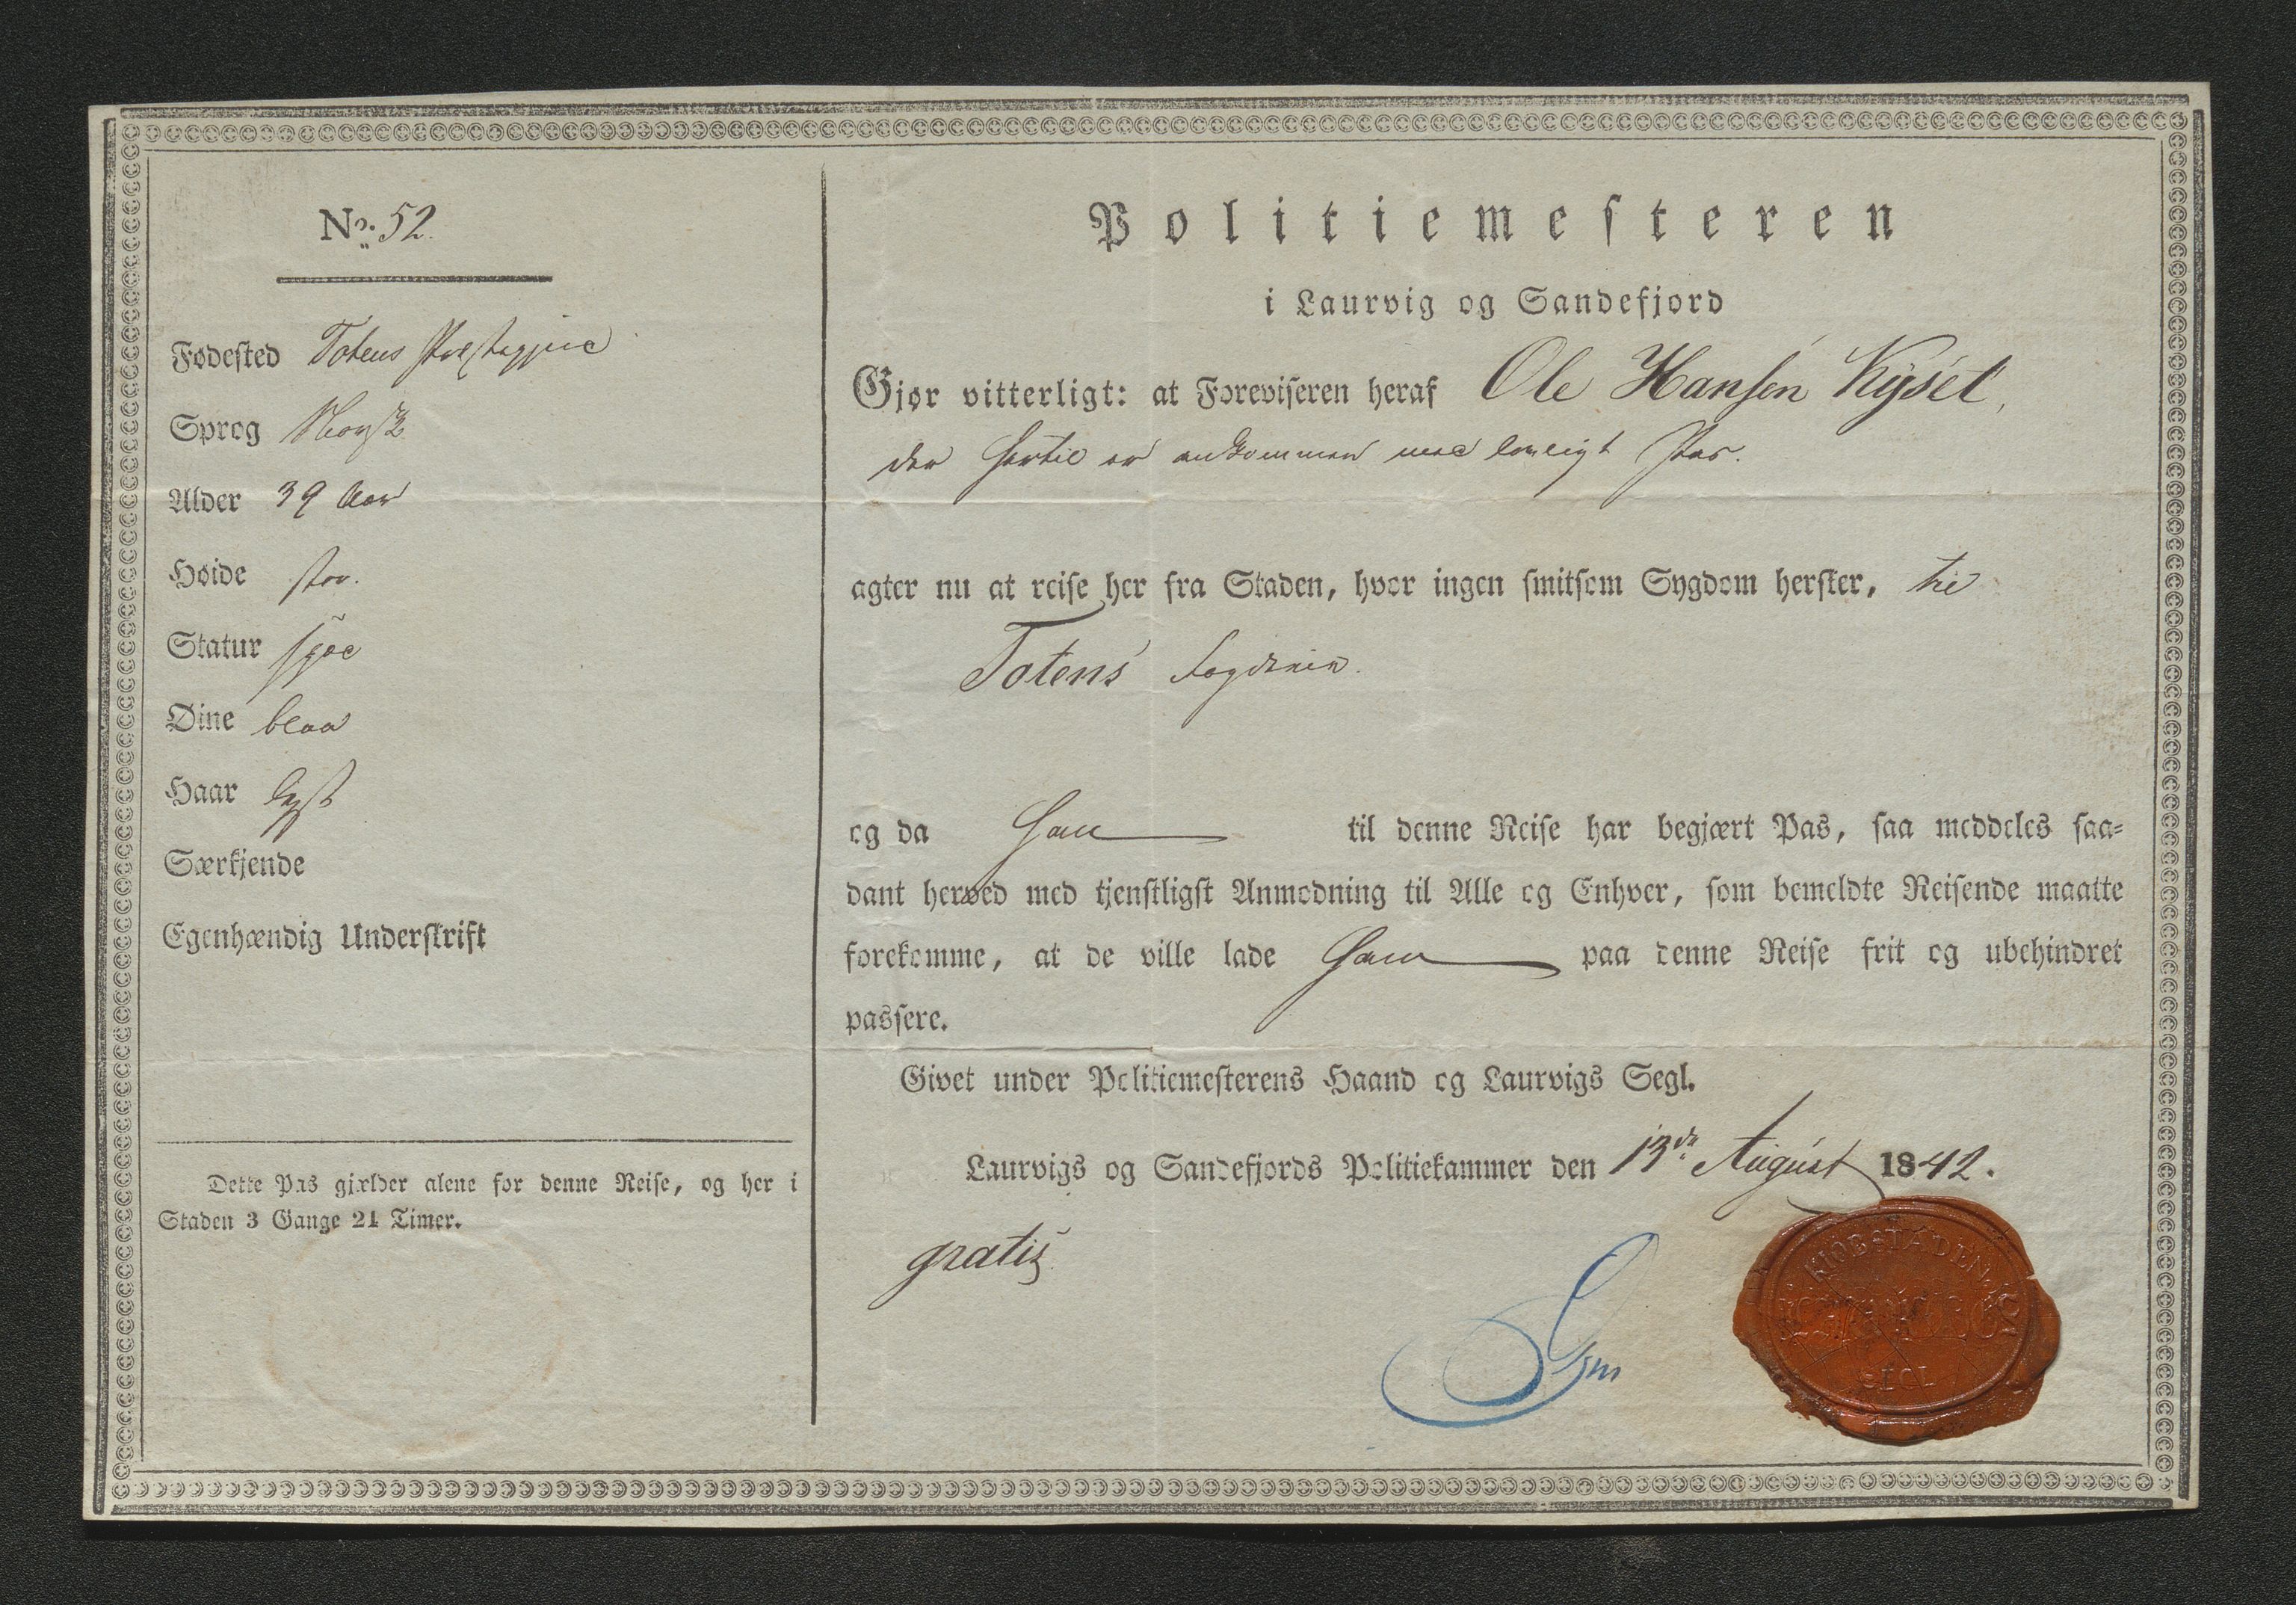 No. 52.
Fødested Totens Præstegjeld
Sprog Norsk
Alder 39 Aar
Høide stor.
Statur
Øine blaa
Haar lyst
Særkjende
Egenhændig Underskrift
Dette Pas gjælder alene for denne Reise, og her i
Staden 3 Gange 24 Timer.
Politiemesteren
i Laurvig og Sandefjord
Gjør vitterligt: at Foreviseren heraf Ole Hansen Kysel,
der hertil er ankommen med lovligt Pas.
agter nu at reise her fra Staden, hvor ingen smitsom Sygdom hersker, til
Totens Fogderie.
og da han til denne Reise har begjært Pas, saa meddeles saa-
dant herved med tjenstligst Anmodning til Alle og Enhver, som bemeldte Reisende maatte
forekomme, at de ville lade ham paa denne Reise frit og ubehindret
passere.
Givet under Politiemesterens Haand og Laurvigs Segl.
Laurvigs og Sandefjords Politiekammer den 13de August 1842.
gratis
KIØBSTADEN